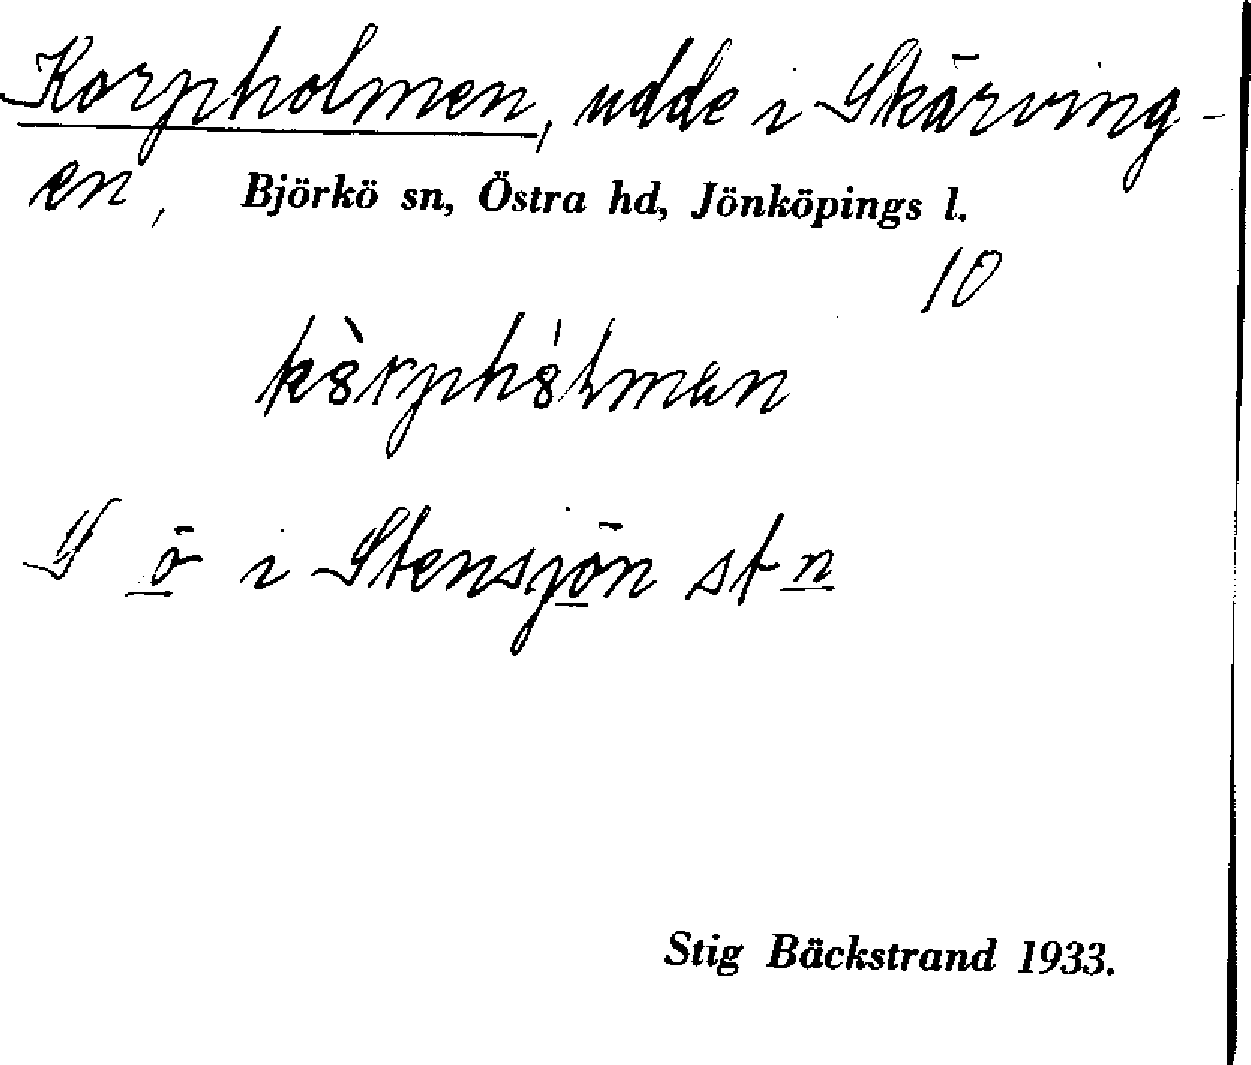 Korpholmen, udde i Skärving-
en, Björkö sn, Östra hd, Jönköpings l.
10
kàrph́álman
S ö i Stensjön st n
Stig Bäckstrand 1933.